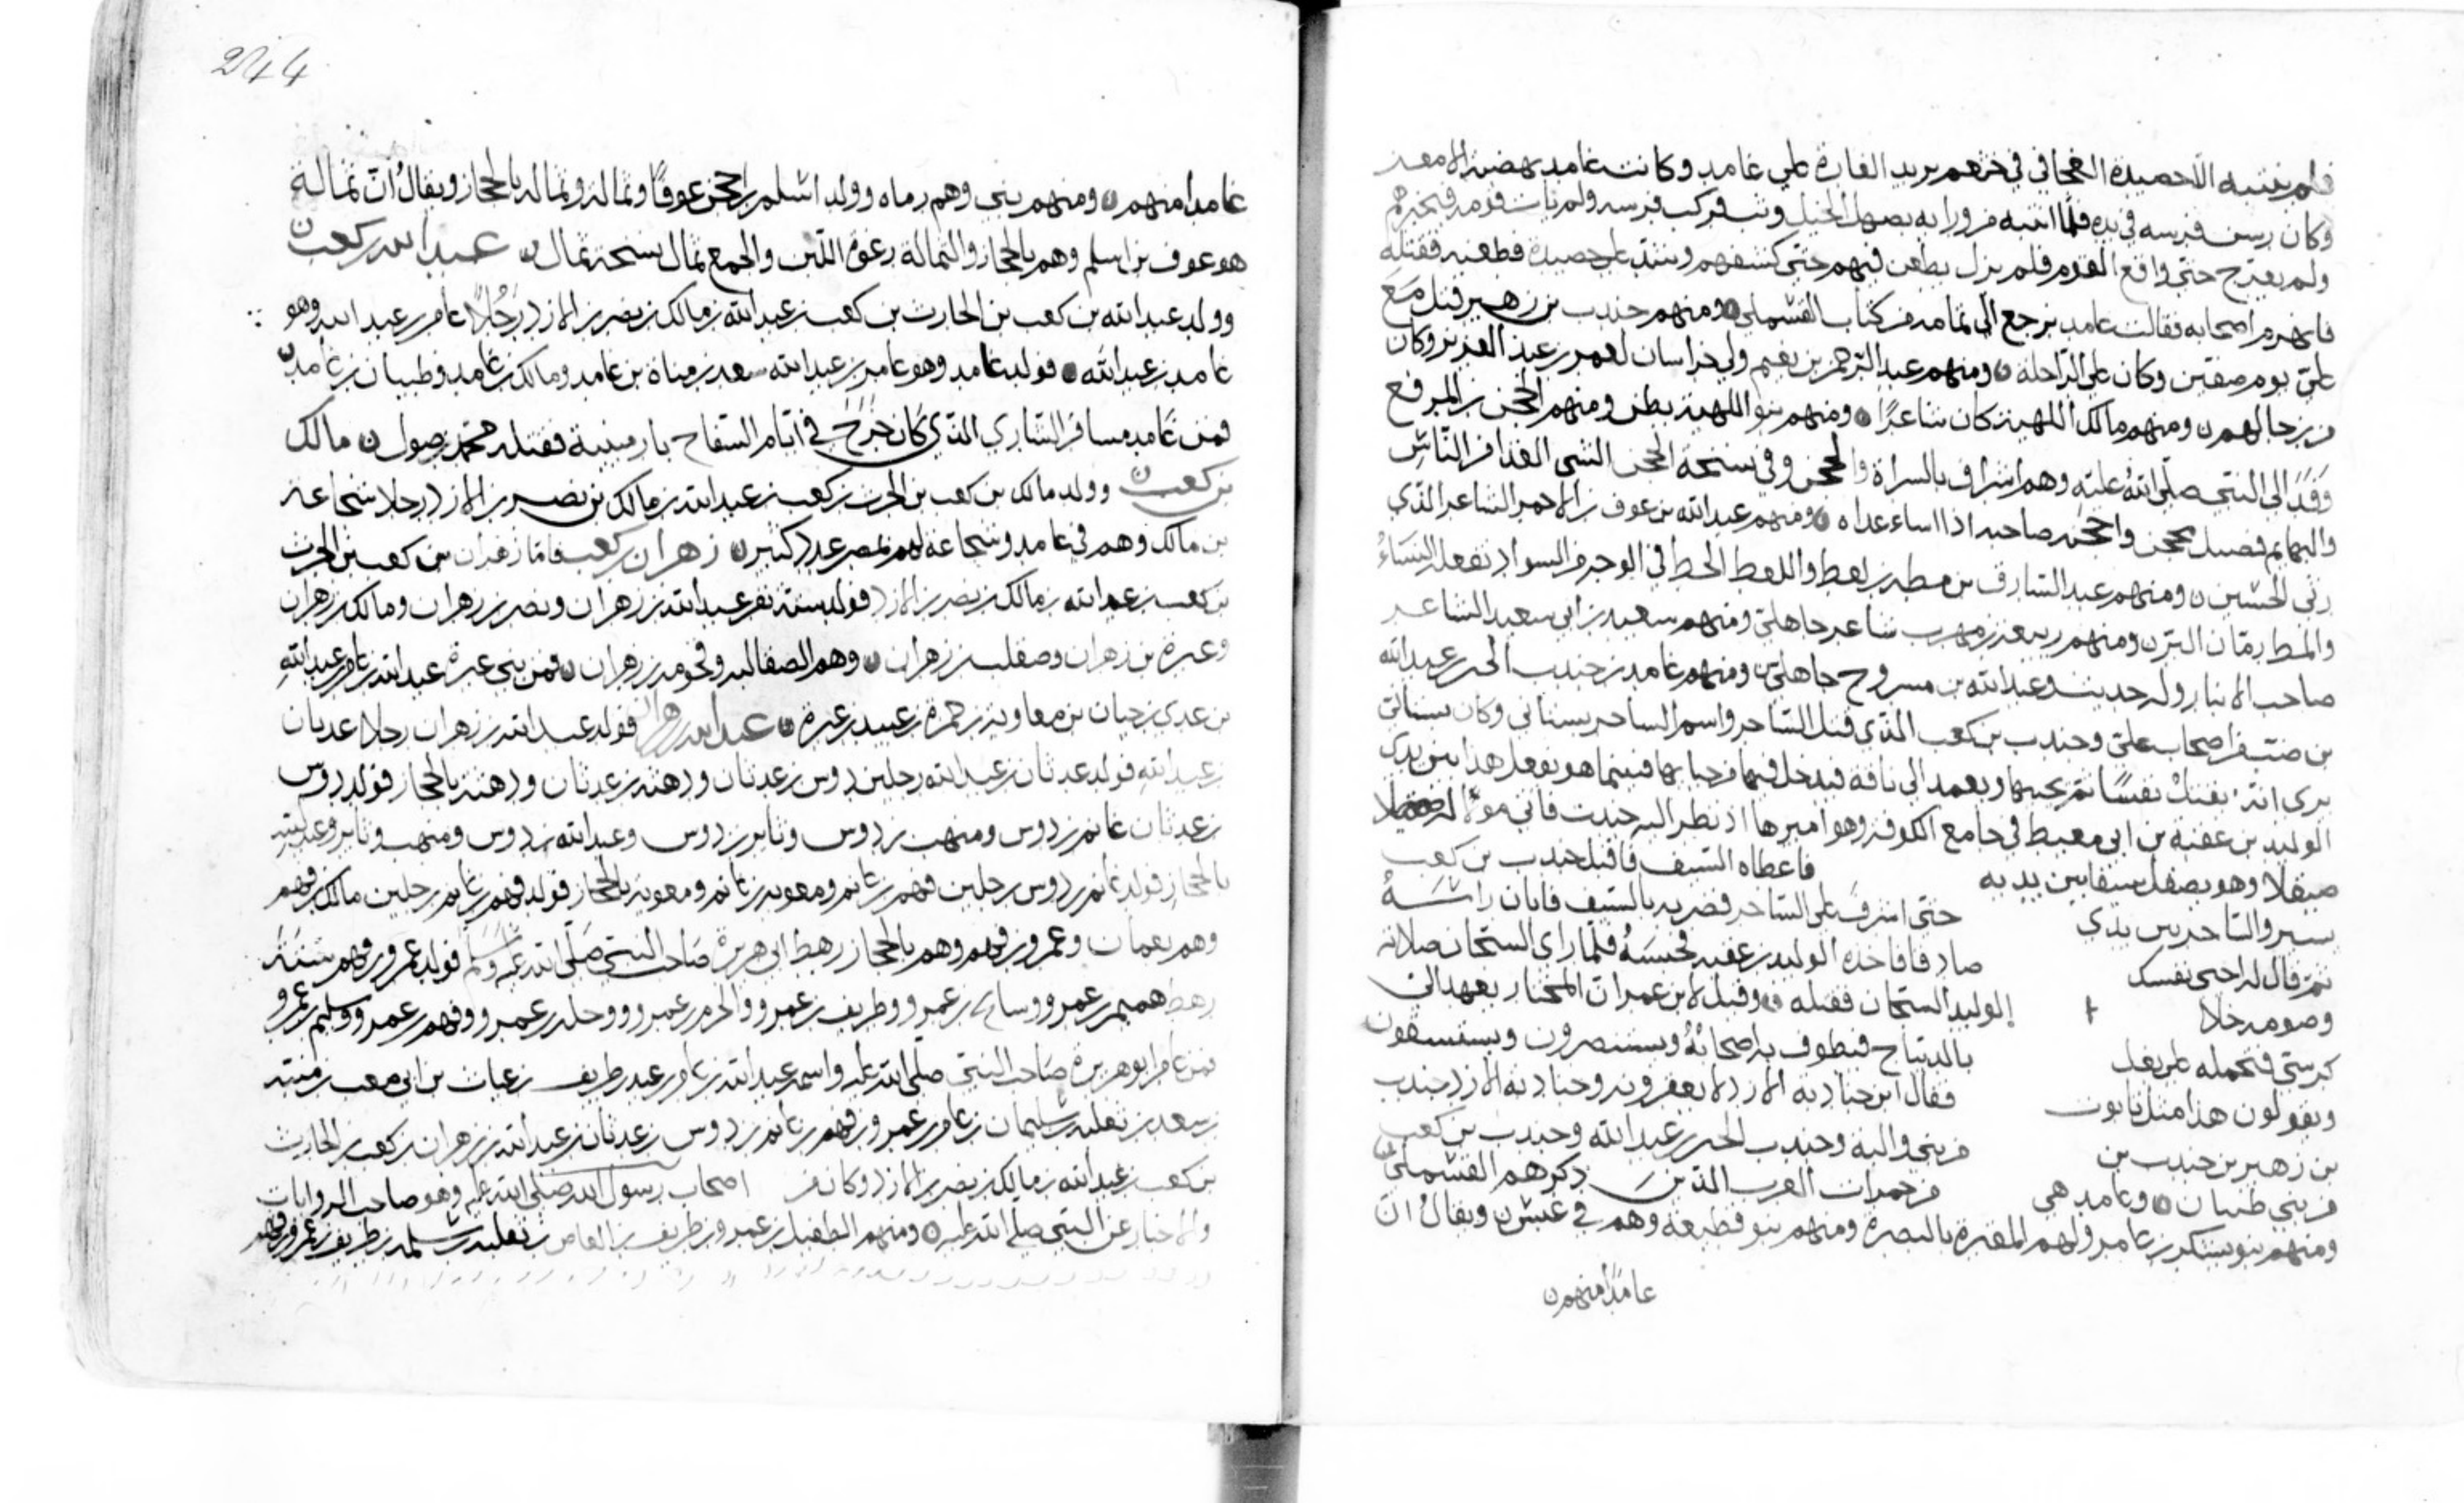 وكان رسن فرسه في يده فلما انتبه
ولم يعرج حتى واقع القوم فلم يزل يطعن فيهم حتى كشفهم
فانهزم اصحابه فقالت غامد نرجع الى ومنهم جندب بن زهير قتل مع
علي يوم صفين وكان على الرجالة ومنهم عبد الرحمن بن نعيم ولي خراسان لعمر بن عبد العزيز وكان
من رجالهم ومنهم مالك اللهبة كان شاعرا ومنهم بنو اللهبة بطن ومنهم الحجن بن المرقع
وفد الى النبي صلى الله عليه وهم اشراف بالسراة والحجن وفي نسخة الحجن السي الغذا من الناس
والبهائم فصيل محجن واحجنه صاحبه اذا اساء غذاه ومنهم عبد الله بن عوف بن الاحمر الشاعر الذي
رثى الحسين ومنهم عبد الشارق بن مطه بن لعط واللعط الخط في الوجه من السواد تفعله النساء
ومنهم ربيعة بن مهرب شاعر جاهلي ومنهم سعيد بن ابي سعيد الشاعر
صاحب الانبار وله حديث وعبد الله بن مسروح جاهلي ومنهم غامد بن جندب الخير بن عبد الله
بن ضب من اصحاب علي وجندب بن كعب الذي قتل الساحر واسم الساحر بستاني وكان بستاني
يري انه يقتل نفسا ثم يحييها ويعمد الى ناقة فيدخل فيها من حيائها فبينما هو يفعل هذا بين يدي
الوليد بن عقبة بن ابي معيط في جامع الكوفة وهو اميرها اذ نظر اليه جندب فاتى مولا له
صيقلا وهو يصقل سيفا بين يديه فاعطاه السيف فاقبل جندب بن كعب
بستر والساحر بين يدي حتى اشرف على الساحر فضربه بالسيف فابان راسه
ثم قال له احيي نفسك صادقا فاخذه الوليد بن عقبة فحبسه فلما راى السجان صلاته
وصومه خلا الوليد السجان فقتله وقيل لابن عمر ان المختار يعمد الى
كرسي فيحمله على بغل بالديباج فيطوف به اصحابه ويستنصرون ويستسقون
ويقولون هذا مثل تابوت فقال اين جنادبة الازد لا يعقرونه وجنادبة الازد جندب
بن زهير بن جندب بن من بني والبة وجندب الخير بن عبد الله وجندب بن كعب
من بني ظبيان وغامد هي من جمرات العرب الذين ذكرهم القشملي
ومنهم بنو يشكر بن عامر ولهم المقبرة بالبصرة ومنهم بنو قطيعة وهم في عبس ويقال ان
غامدا منهم
244
غامدا منهم ومنهم بنى وهم رماه وولد اسلم بن احجن عوفا وثمالة وثمالة بالحجاز ويقال ان ثمالة
هو عوف بن اسلم وهم بالحجاز والثمالة رغوة اللبن والجمع ثمال نسخة ثمال عبد الله بن كعب
وولد عبد الله بن كعب بن الحارث بن كعب بن عبد الله بن مالك بن نصر بن الازد رجلا عامر بن عبد الله وهو
غامد بن عبد الله فولد غامد وهو عامر بن عبد الله سعد مناة بن غامد ومالك بن غامد وظبيان بن غامد
فمن غامد مسافر الشاري الذي كان خرج في ايام السفاح بارمينية فقتله محمد بن صول مالك
بن كعب وولد مالك بن كعب بن الحرث بن كعب بن عبد الله بن مالك بن نصر بن الازد رجلا شجاعة
بن مالك وهم في غامد وشجاعة لهم بمصر عدد كبير زهران بن كعب فاما زهران بن كعب بن الحرث
بن كعب بن عبد الله بن مالك بن نصر بن الازد فولد ستة نفر عبد الله بن زهران ونصر بن زهران ومالك بن زهران
وعبرة بن زهران وصقلب بن زهران وهم الصقالبة وفحومة بن زهران فمن بني عبرة عبد الله بن عامر بن عبد الله
بن عدي بن حيان بن معاوية بن حمزة بن عبيد بن عبرة عبد الله بن زهران فولد عبد الله بن زهران رجلا عدنان
بن عبد الله فولد عدنان بن عبد الله رجلين دوس بن عدنان ودهنة بن عدنان ودهنة بالحجاز فولد دوس
بن عدنان غانم بن دوس ومنهب بن دوس وثابر بن دوس وعبد الله بن دوس ومنهب وثابر وعبد الله
بالحجاز فولد غانم بن دوس رجلين فهم بن غانم ومعوية بن غانم ومعوية بالحجاز فولد فهم بن غانم رجلين مالك بن فهم
وهم بعمان وعمرو بن فهم وهم بالحجاز رهط ابي هريرة صاحب النبي صلى الله عليه وسلم فولد عمرو بن فهم ستة
رهط هميم بن عمرو وساعد بن عمرو وطريف بن عمرو والحرم بن عمرو وحلد بن عمرو وفهم بن عمرو وسليم بن عمرو
فمن عامر ابو هريرة صاحب النبي صلى الله عليه واسمه عبد الله بن عامر بن عبد بن طريف بن عياث بن ابي صعب بن منبه
بن سعد بن ثعلبة بن سليمان بن عامر بن عمرو بن فهم بن غانم بن دوس بن عدنان بن عبد الله بن زهران بن كعب بن الحارث
بن كعب بن عبد الله بن مالك بن نصر بن الازد وكان من اصحاب رسول الله صلى الله عليه وهو صاحب الروايات
والاخبار عن النبي صلى الله عليه ومنهم الطفيل بن عمرو بن طريف بن العاص بن ثعلبة بن سليمة بن طريف بن عمرو بن فهم